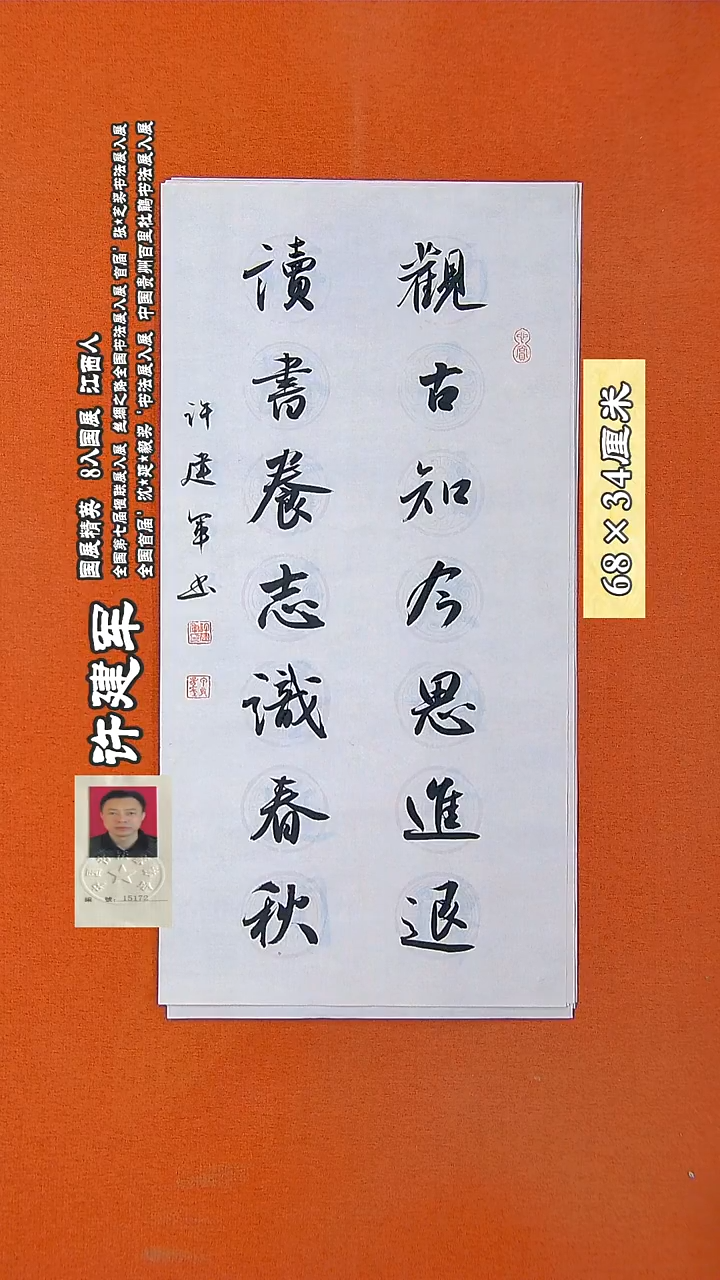 觀古知今思進退
讀書養志識春秋
许建军书
许建军
国展精英 8入国展 江西人
全国第七届楹联展入展 丝绸之路全国书法展入展 首届'张*芝奖书法展入展
全国首届'沈*延*毅奖'书法展入展 中国贵州百里杜鹃书法展入展
68×34厘米
編號:15172